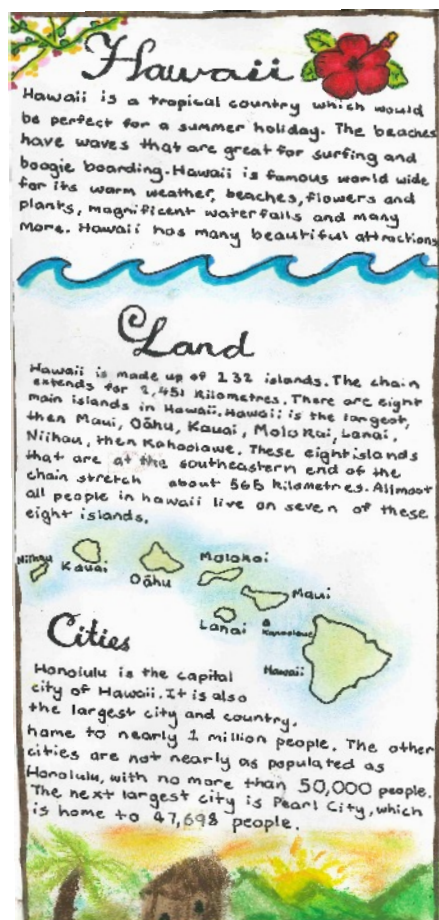 Hawaii
Hawaii is a tropical country which would
be perfect for a summer holiday. The beaches
have waves that are great for surfing and
boogie boarding. Hawaii is famous world wide
for its warm weather, beaches, flowers and
plants, magnificent waterfalls and many
More. Hawaii has many beautiful attractions
Land
Hawaii is made up of 132 islands. The chain
extends for 2,451 Kilometres. There are eight
main islands in Hawaii. Hawaii is the largest,
then Maui, Oāhu, Kauai, Molokai, Lanai,
Niihau, then Kahoolawe. These eight islands
that are at the southeastern end of the
chain stretch about 565 kilometres. Allmost
all people in hawaii live on seven of these
eight islands.
Niihau
Kauai
Oāhu
Molokai
Maui
Lanai
Kahoolawe
Hawaii
Cities
Honolulu is the capital
city of Hawaii. It is also
the largest city and country.
home to nearly 1 million people. The other
cities are not nearly as populated as
Honolulu, with no more than 50,000 people.
The next largest city is Pearl City, which
is home to 47,698 people.